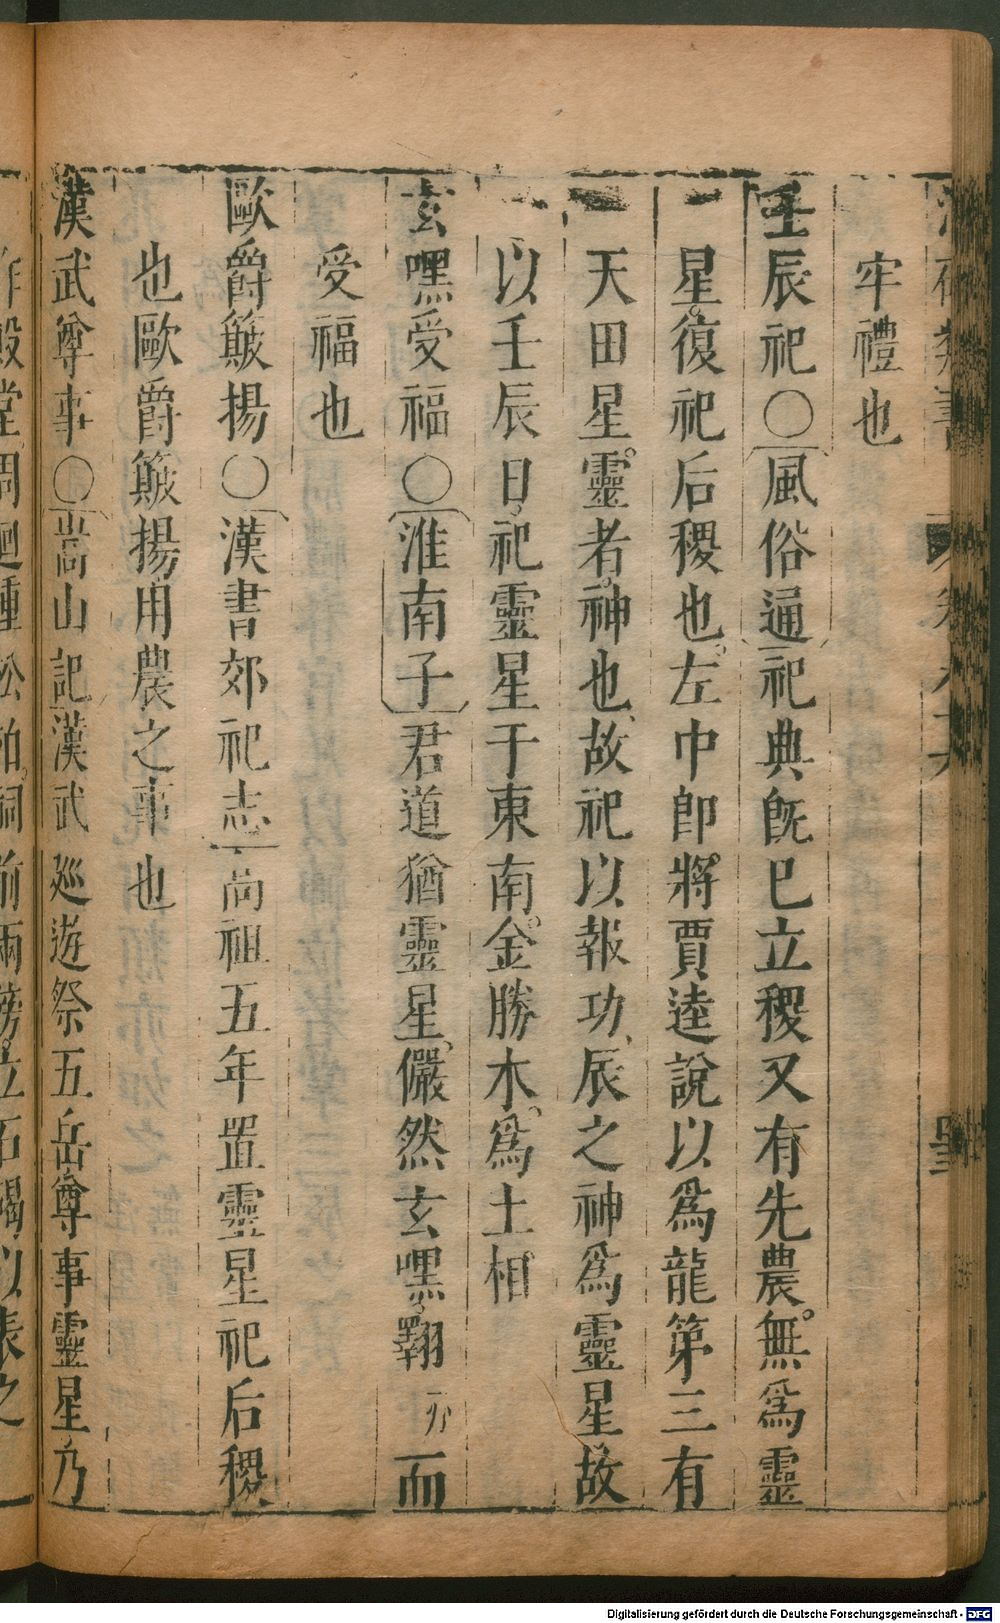 牢禮也
壬辰祀○風俗通祀典旣已立稷又有先農無爲靈
星復祀后稷也左中郎將賈逵說以爲龍第三有
天田星靈者神也故祀以報功辰之神爲靈星故
以壬辰日祀靈星于東南金勝木爲土相
玄嘿受福○淮南子君道猶靈星儼然玄嘿翱而
受福也
歐爵簸揚○漢書郊祀志高祖五年置靈星祀后稷
也歐爵簸揚用農之事也
漢武尊事○嵩山記漢武廵遊祭五岳尊事靈星乃
作殿堂周迴種松柏祠前兩旁立石碣以表之
Digitalisierung gefördert durch die Deutsche Forschungsgemeinschaft - DFG